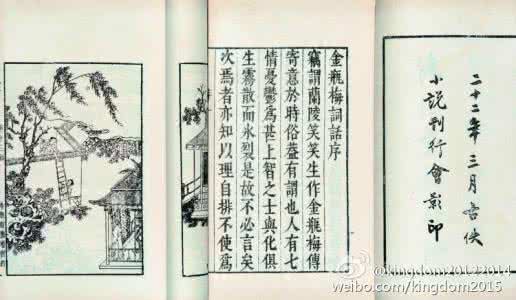 金瓶梅詞話序
竊謂蘭陵笑笑生作金瓶梅傳
寄意於時俗蓋有謂也人有七
情憂鬱爲甚上智之士與化俱
生霧散而冰裂是故不必言矣
次焉者亦知以理自排不使爲
二十二年三月古佚
小說刊行會影印
@kingdom20122014
weibo.com/kingdom2015